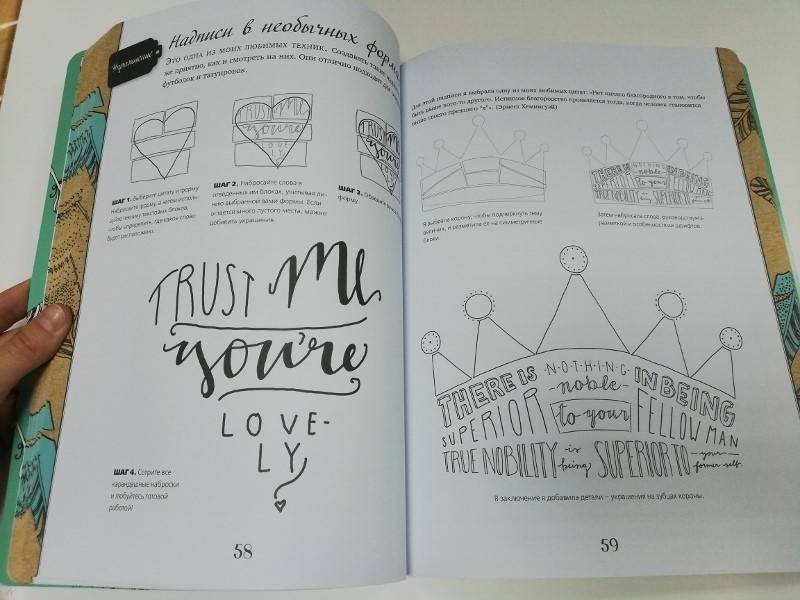 Упражнение
Надписи в необычных форма
Это одна из моих любимых техник. Создавать такие
же приятно, как и смотреть на них. Они отлично подходят для
футболок и татуировок.
TRUST Me
you're
LOVE
LY
TRUST Me
you're
ШАГ 1. Выберите цитату и форму.
Набросайте форму, а затем исполь-
зуйте технику текстовых блоков,
чтобы определить, где какое слово
будет расположено.
ШАГ 2. Набросайте слова в
отведенных им блоках, учитывая ли-
нию выбранной вами формы. Если
остается много пустого места, можно
добавить украшения.
ШАГ 3. Обведите
форму.
TRUST Me
you're
LOVE-
LY
ШАГ 4. Сотрите все
карандашные наброски
и любуйтесь готовой
работой!
58
Для этой надписи я выбрала одну из моих любимых цитат: «Нет ничего благородного в том, чтобы
быть выше кого-то другого. Истинное благородство проявляется тогда, когда человек становится
выше своего прежнего "я"». (Эрнест Хемингуэй)
Я выбрала корону, чтобы подчеркнуть тему
величия, и разметила ее на симметричные
блоки.
THERE IS NOTHING IN BEING
noble
SUPERIOR to your FELLOW MAN
TRUE NOBILITY SUPERIOR TO
Затем набросала слова, руководствуясь
разметкой и особенностями шрифтов.
THERE IS NOTHING IN BEING
noble
SUPERIOR to your FELLOW MAN
TRUE NOBILITY is being SUPERIOR TO your former self.
В заключение я добавила детали – украшения на зубцах короны.
59